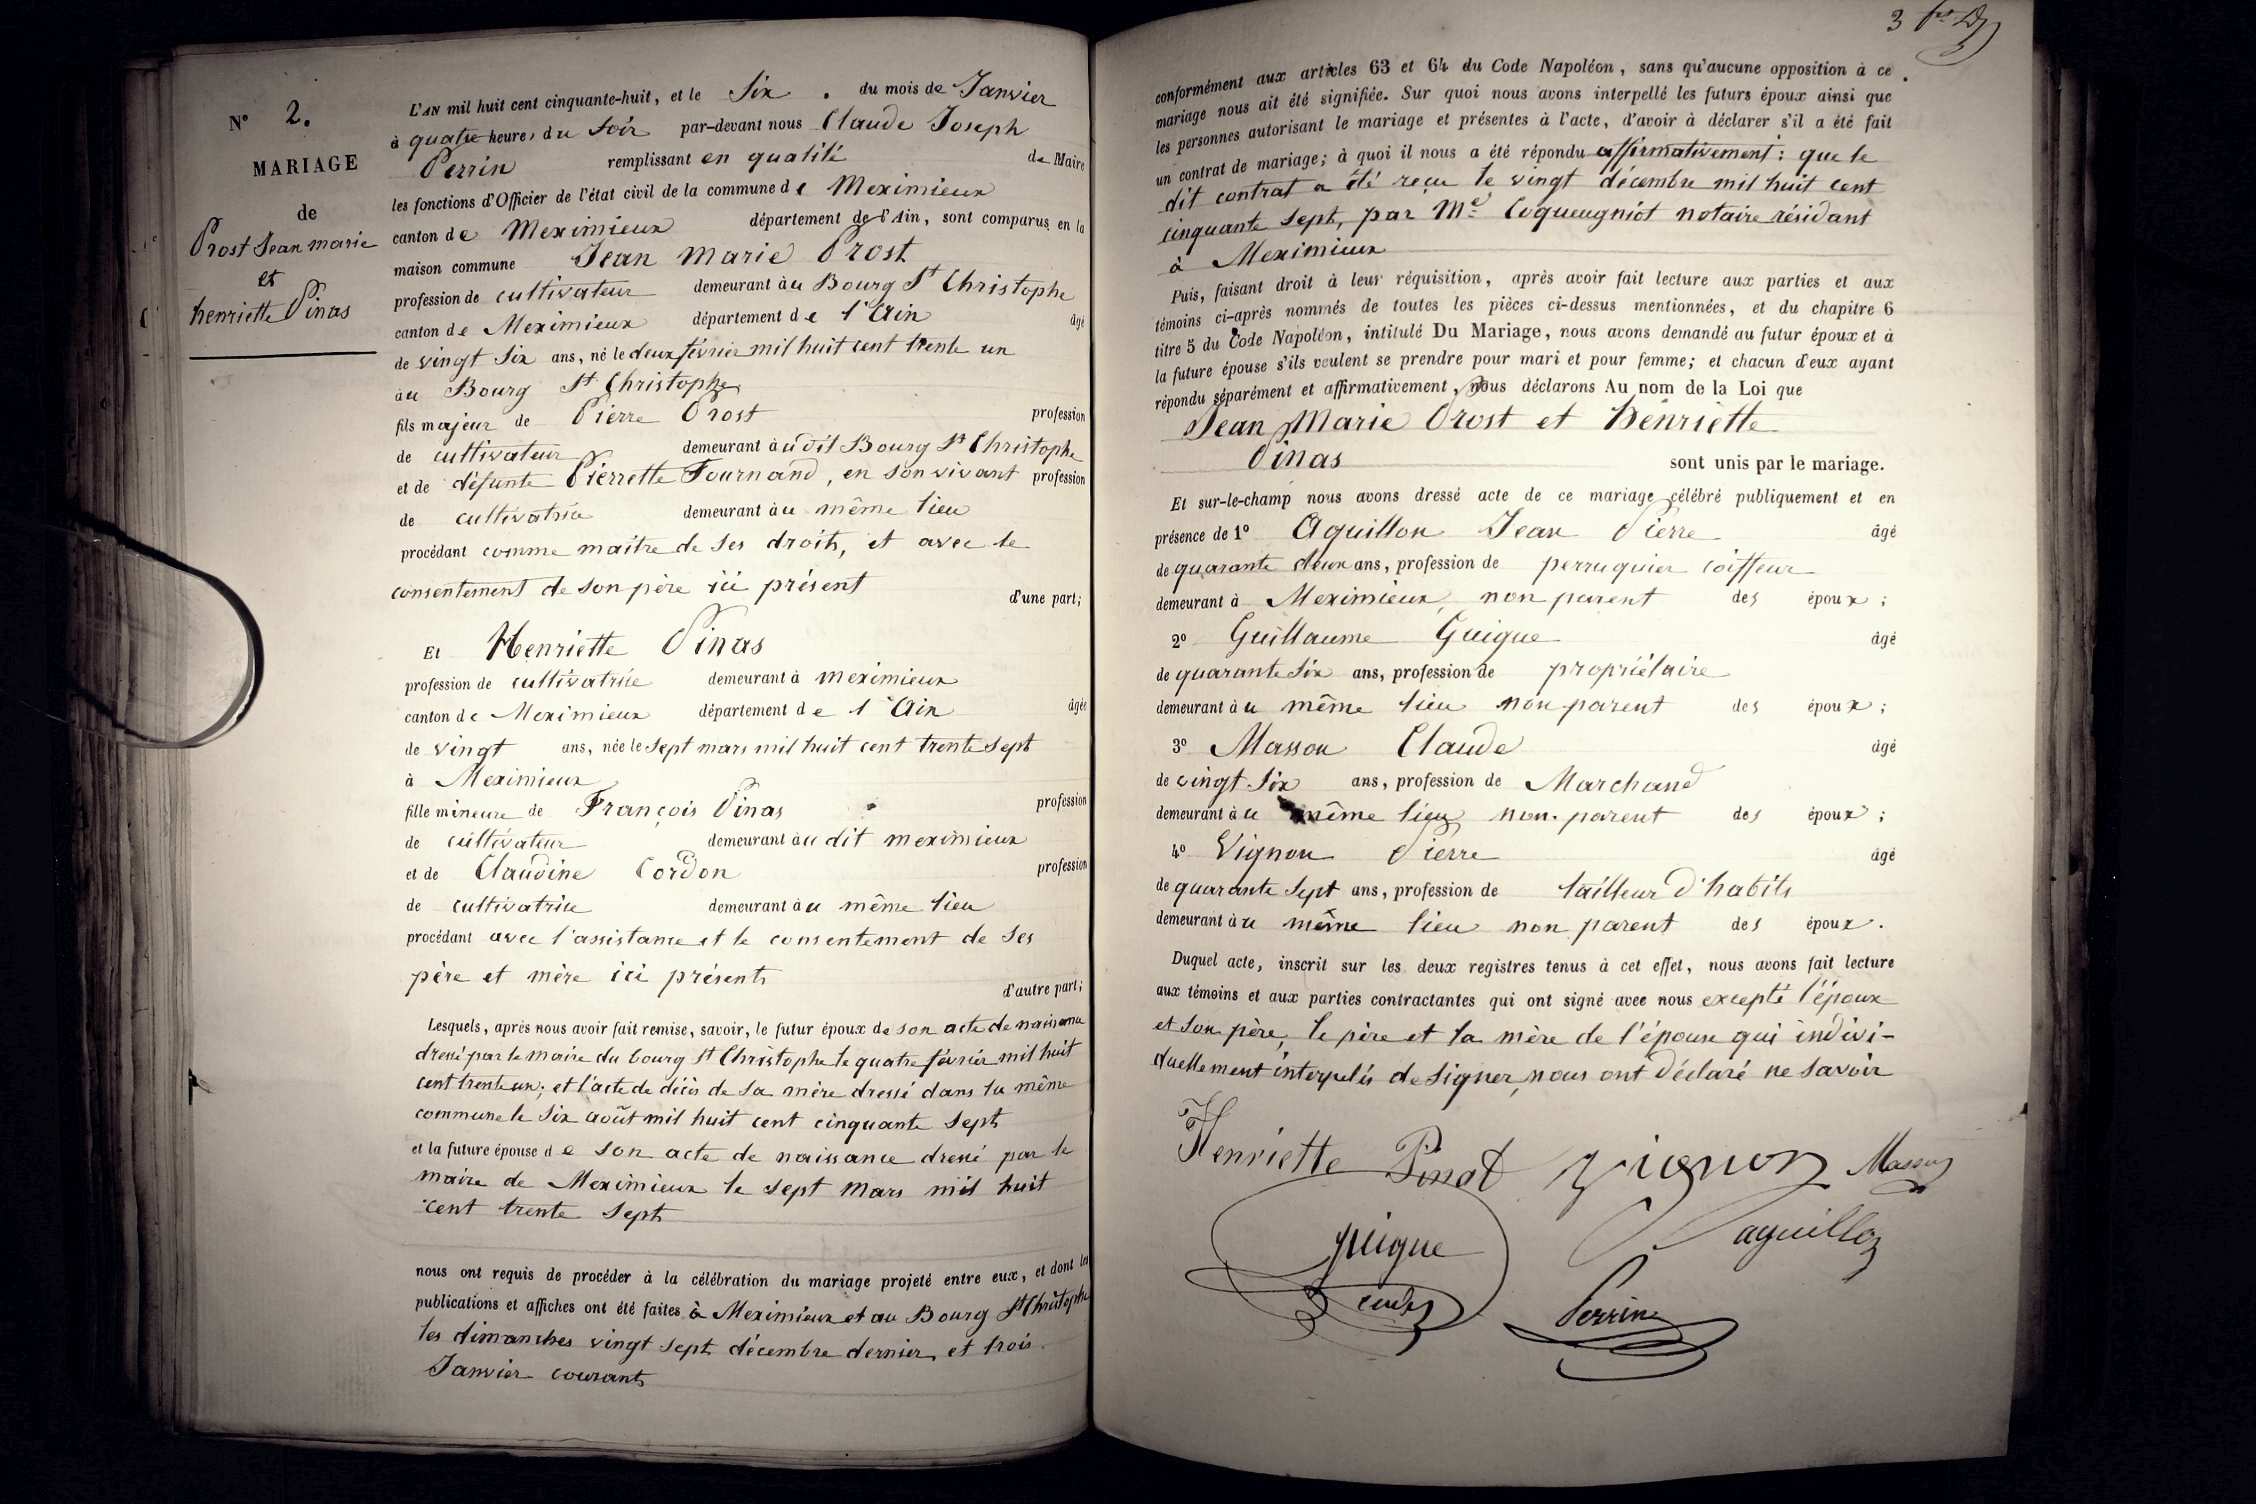 N° 2.
MARIAGE
de
Prost Jean marie
et
henriette Pinas
L'AN mil huit cent cinquante-huit, et le Six . du mois de Janvier
à quatre heures du Soir par-devant nous Claude Joseph
Perrin remplissant en qualité de Maire
les fonctions d'Officier de l'état civil de la commune de Meximieux
canton de Meximieux département de l'Ain, sont comparus en la
maison commune Jean Marie Prost
profession de cultivateur demeurant àu Bourg St Christophe
canton de Meximieux département de l'Ain âgé
de vingt Six ans, né le deux février mil huit cent trente un
àu Bourg St Christophe
fils majeur de Pierre Prost profession
de cultivateur demeurant àu dit Bourg St Christophe
et de défunte Pierrette Fournand, en son vivant profession
de cultivatrice demeurant àu même lieu
procédant comme maître de Ses droits, et avec le
consentement de son père ici présent
d'une part;
Et Henriette Pinas
profession de cultivatrice demeurant à meximieux
canton de Meximieux département de l'Ain âgée
de vingt ans, née le Sept mars mil huit cent trente sept
à Meximieux
fille mineure de François Pinas profession
de cultivateur demeurant àu dit meximieux
et de Claudine Cordon profession
de cultivatrice demeurant àu même lieu
procédant avec l'assistance et le consentement de Ses
père et mère ici présents
d'autre part;
Lesquels, après nous avoir fait remise, savoir, le futur époux de son acte de naissance
dressé par le maire du bourg St Christophe le quatre février mil huit
cent trente un; et l'acte de décès de Sa mère dressé dans la même
commune le Six août mil huit cent cinquante Sept
et la future épouse de Son acte de naissance dressé par le
maire de Meximieux le Sept Mars mil huit
cent trente Sept
nous ont requis de procéder à la célébration du mariage projeté entre eux, et dont les
publications et affiches ont été faites à Meximieux et au Bourg St Christophe
les dimanches vingt sept décembre dernier, et trois
Janvier courant
3
conformément aux articles 63 et 64 du Code Napoléon, sans qu'aucune opposition à ce
mariage nous ait été signifiée. Sur quoi nous avons interpellé les futurs époux ainsi que
les personnes autorisant le mariage et présentes à l'acte, d'avoir à déclarer s'il a été fait
un contrat de mariage; à quoi il nous a été répondu affirmativement: que le
dit contrat a été reçu le vingt décembre mil huit cent
cinquante Sept, par Me Coqueugniot notaire résidant
à Meximieux
Puis, faisant droit à leur réquisition, après avoir fait lecture aux parties et aux
témoins ci-après nommés de toutes les pièces ci-dessus mentionnées, et du chapitre 6
titre 5 du Code Napoléon, intitulé Du Mariage, nous avons demandé au futur époux et à
la future épouse s'ils veulent se prendre pour mari et pour femme; et chacun d'eux ayant
répondu séparément et affirmativement, nous déclarons Au nom de la Loi que
Jean Marie Prost et henriette
Pinas sont unis par le mariage.
Et sur-le-champ nous avons dressé acte de ce mariage célébré publiquement et en
présence de 1° Aguillon Jean Pierre âgé
de quarante deux ans, profession de perruquier coiffeur
demeurant à Meximieux, non parent des époux;
2° Guillaume Guigue âgé
de quarante Six ans, profession de propriétaire
demeurant àu même lieu non parent des époux;
3° Masson Claude âgé
de vingt Six ans, profession de Marchand
demeurant àu même lieu non parent des époux;
4° Vignon Pierre âgé
de quarante Sept ans, profession de tailleur d'habits
demeurant àu même lieu non parent des époux.
Duquel acte, inscrit sur les deux registres tenus à cet effet, nous avons fait lecture
aux témoins et aux parties contractantes qui ont signé avec nous excepté l'époux
et Son père, le père et la mère de l'épouse qui indivi-
duellement interpelés de signer, nous ont déclaré ne savoir
Henriette Pinat Vignon Masson
guigue aguillon
Perrin